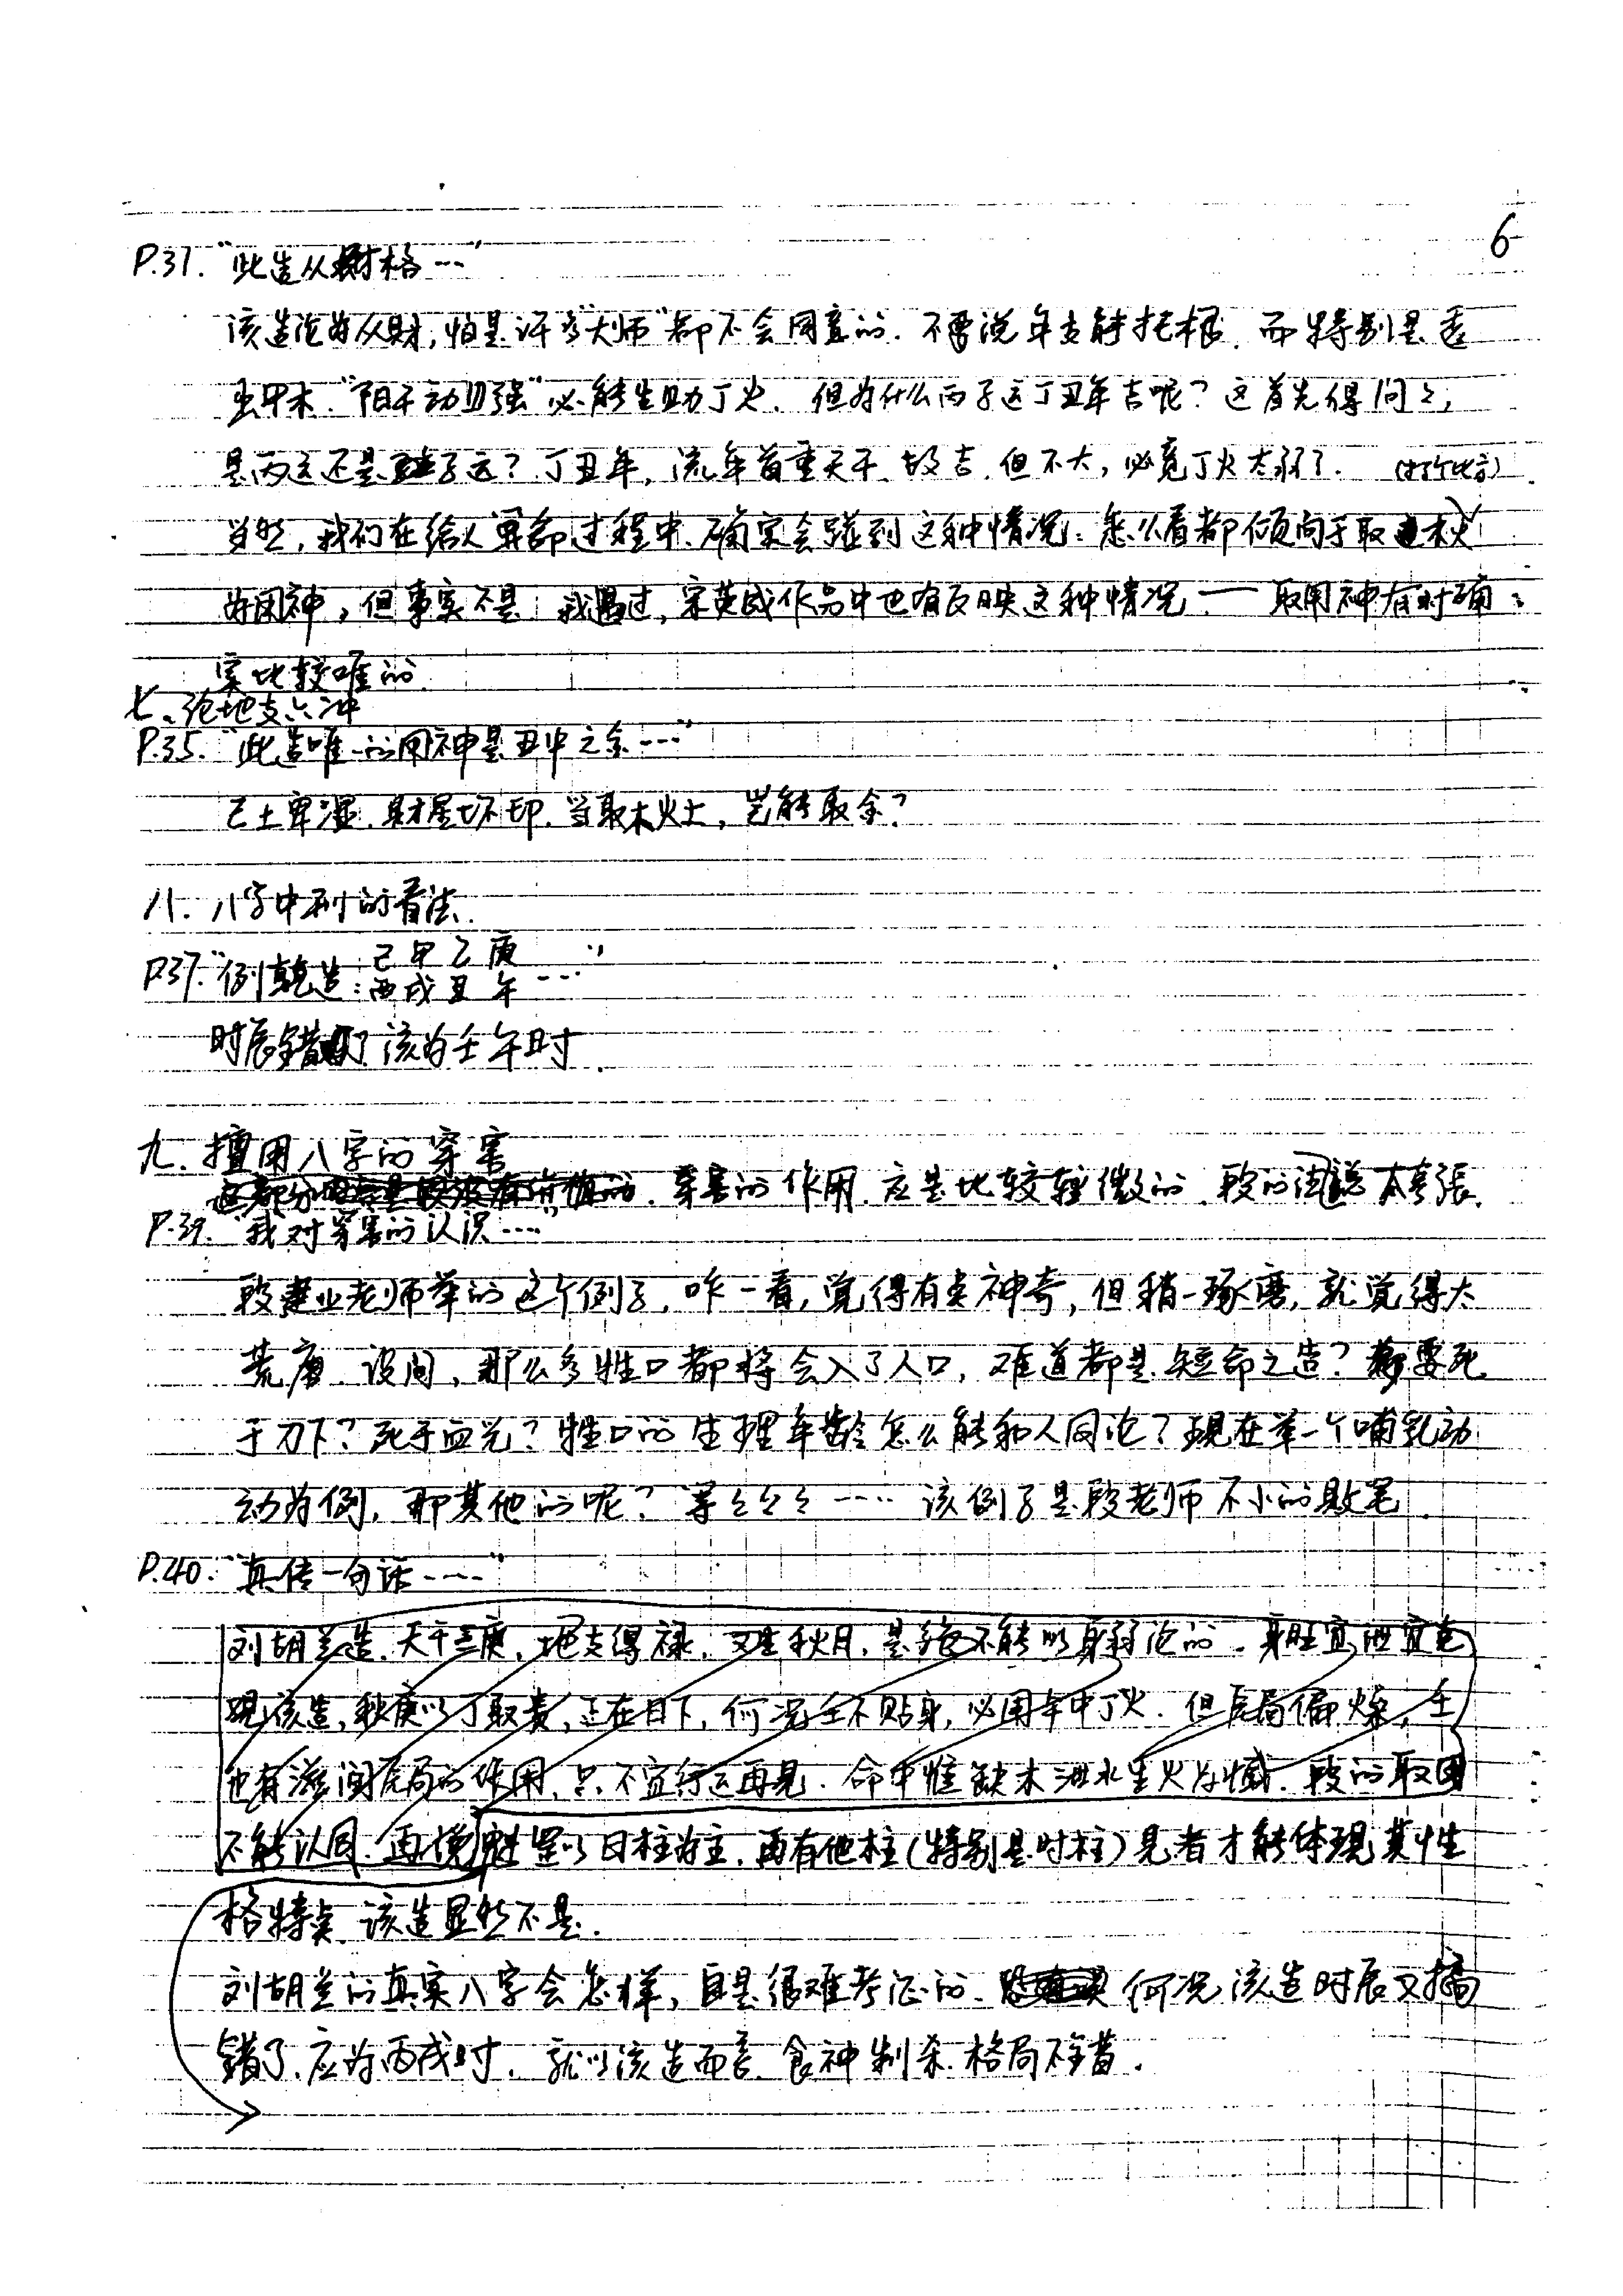 6
P.31. "此造从财格……"
该造论为从财,怕是许多"大师"都不会同意的. 不要说年支能托根. 而特别是透
出甲木."阳干动则强"必能生助丁火. 但为什么丙子运丁丑年吉呢?这首先得问之,
是丙运还是子运?丁丑年,流年首重天干.故吉.但不大,必竟丁火太弱了.
当然,我们在给人算命过程中.确实会碰到这种情况:怎么看都倾向于取
为用神,但事实不是.我遇过,宋英成作品中也有反映这种情况——取用神有时确
实比较难的.
七、论地支六冲
P.35. "此造唯一的用神是丑中之金……"
己土卑湿.财星坏印.当取木火土,岂能取金?
八. 八字中刑的看法.
P37."例乾造: 己 甲 乙 庚
酉 戌 丑 午 ……"
时辰错了.该为壬午时.
九. 擅用八字的穿害
穿害的作用.应是比较轻微的.段的 夸張.
P.39. "我对穿害的认识……"
段建业老师举的这个例子,咋一看,觉得有点神奇,但稍一琢磨,就觉得太
荒唐.设问,那么多牲口都将会入了人口,难道都是短命之造?都要死
于刀下?死于血光?牲口的生理年龄怎么能和人同论?现在举一个哺乳动
动为例,那其他的呢?等々々々……该例子是段老师不小的败笔.
P.40. "真传一句话……"
刘胡兰造.天干三庚.地支得禄.又生秋月.是绝不能以身弱论的.身旺宜泄宜克
观该造,秋庚以丁取贵,正在日下,何况壬不贴身,必用午中丁火.但辰局偏燥,壬
也有滋润辰局的作用.只不宜行运再见.命中惟缺木泄水生火为憾.段的取用
不能认同.再说魁罡以日柱为主.再有他柱(特别是时柱)见者才能体现其性
格特点.该造显然不是.
刘胡兰的真实八字会怎样,自是很难考证的.何况该造时辰又搞
错了.应为丙戌时.就以该造而言.食神制杀.格局不错.